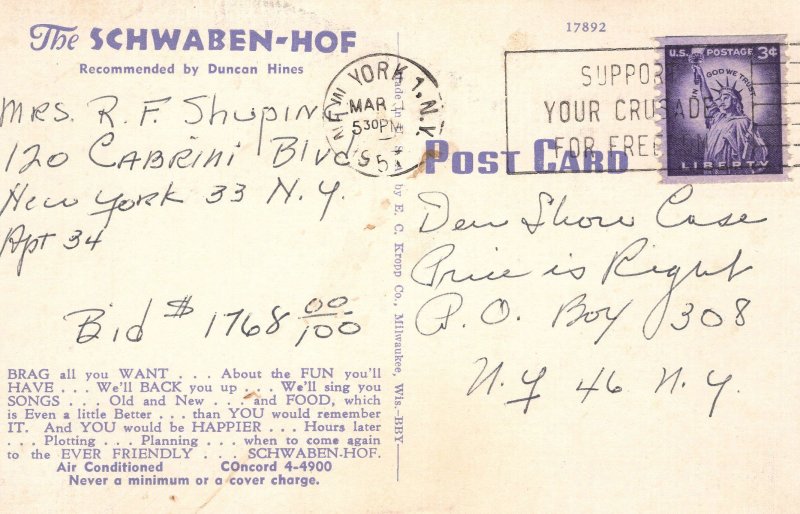 The SCHWABEN-HOF
Recommended by Duncan Hines
Mrs. R. F. Shupin
120 CABRINI Blvd
New York 33 N.Y.
Apt 34
Bid $ 1768 00/100
BRAG all you WANT . . . About the FUN you'll
HAVE . . . We'll BACK you up . . . We'll sing you
SONGS . . . Old and New . . . and FOOD, which
is Even a little Better . . . than YOU would remember
IT. And YOU would be HAPPIER . . . Hours later
. . . Plotting . . . Planning . . . when to come again
to the EVER FRIENDLY . . . SCHWABEN-HOF.
Air Conditioned COncord 4-4900
Never a minimum or a cover charge.
Made in U.S.A. by E. C. Kropp Co., Milwaukee, Wis.-BBY
17892
NEW YORK 1, N.Y.
MAR
530PM
SUPPOR
YOUR CRUSADE
FOR FREEDOM
U.S. POSTAGE 3¢
IN GOD WE TRUST
LIBERTY
POST CARD
Show Case
Price is Right
P.O. Box 308
N.Y 46 N.Y.